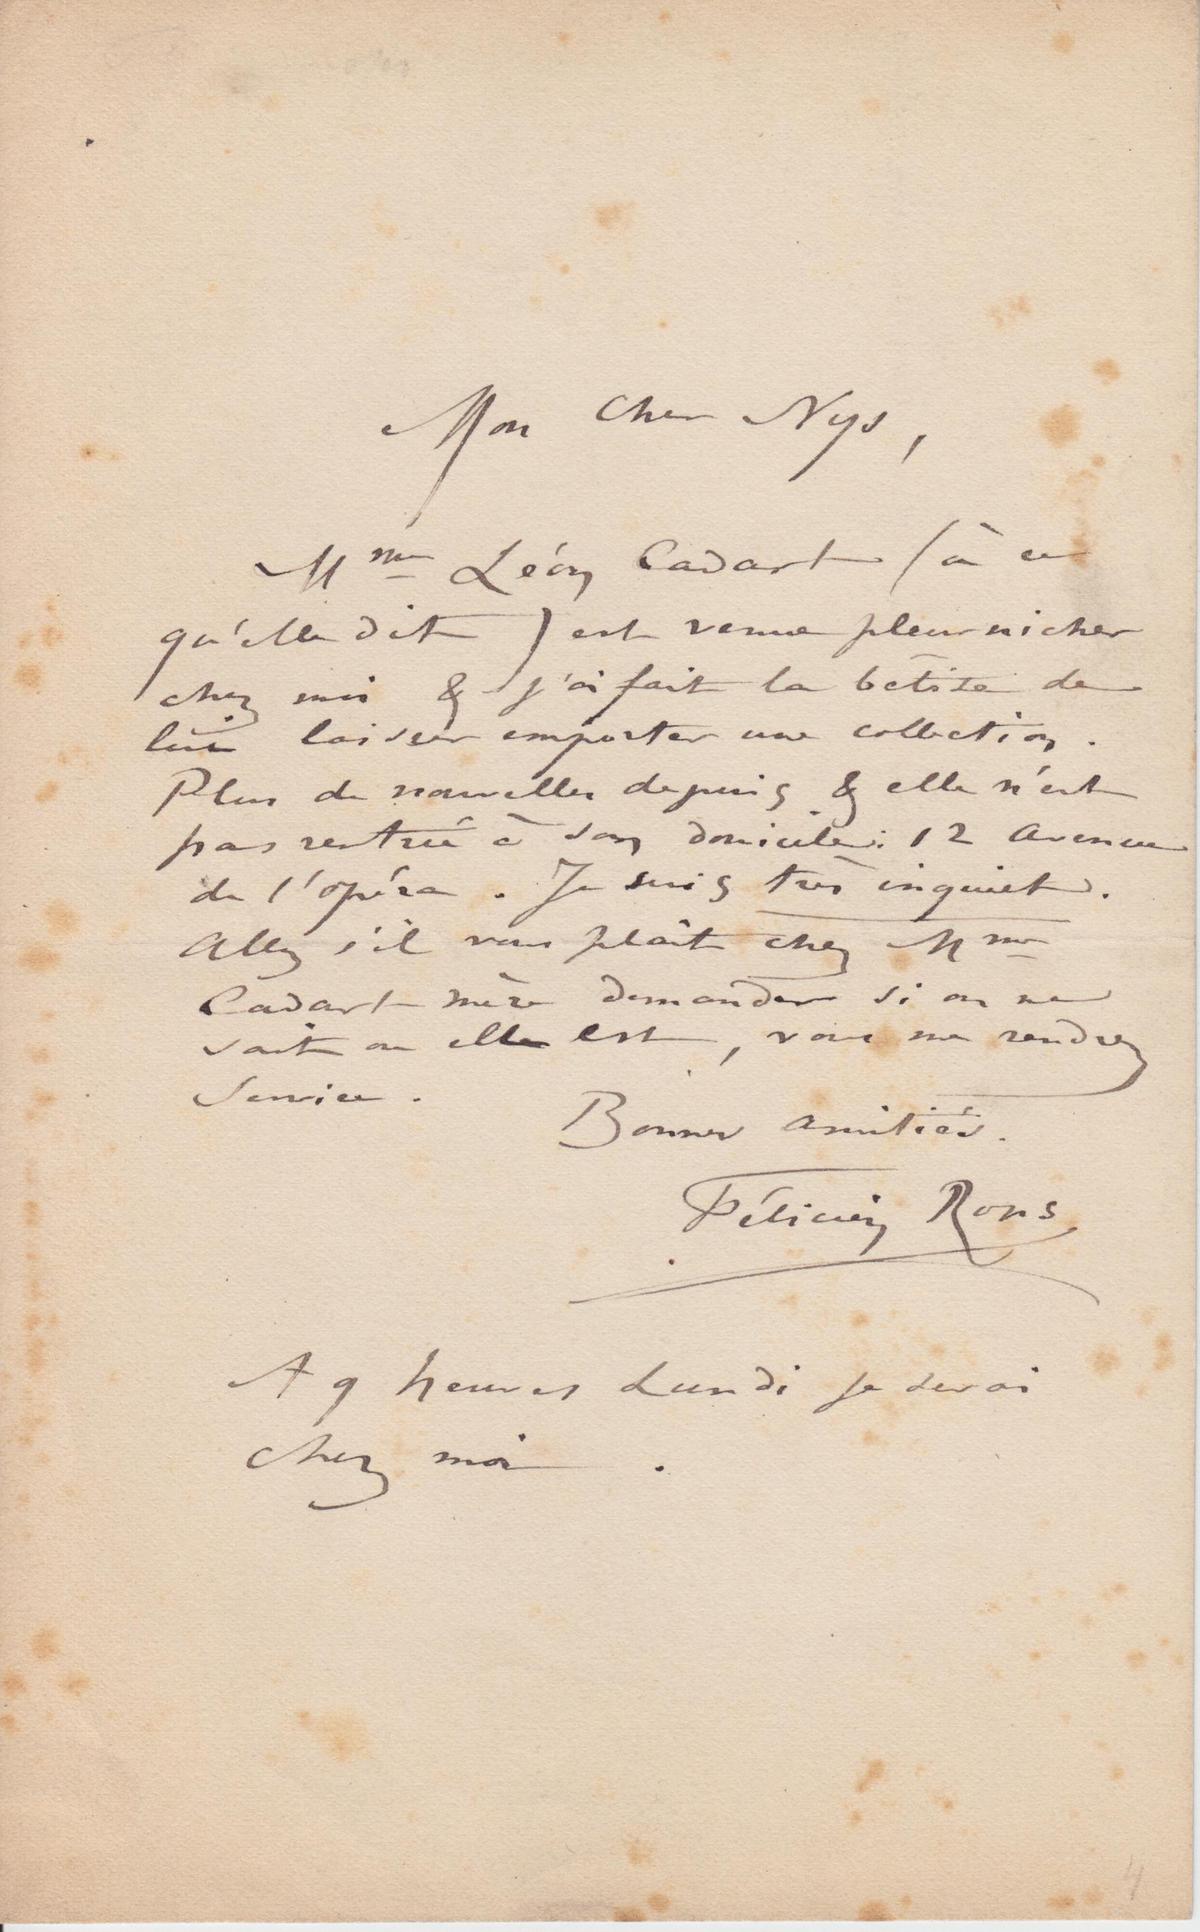 Mon Cher Nys,
Mme Léon Cadart (à ce
qu'elle dit) est venue pleurnicher
chez moi & j'ai fait la bêtise de
lui laisser emporter une collection.
Plus de nouvelles depuis & elle n'est
pas rentrée à son domicile : 12 Avenue
de l'opéra. Je suis très inquiet.
Allez s'il vous plaît chez Mme
Cadart mère demander si on ne
sait ou elle est, vous me rendrez
Service.
Bonnes amitiés.
Félicien Rops
A 9 heures Lundi je serai
chez moi.
4